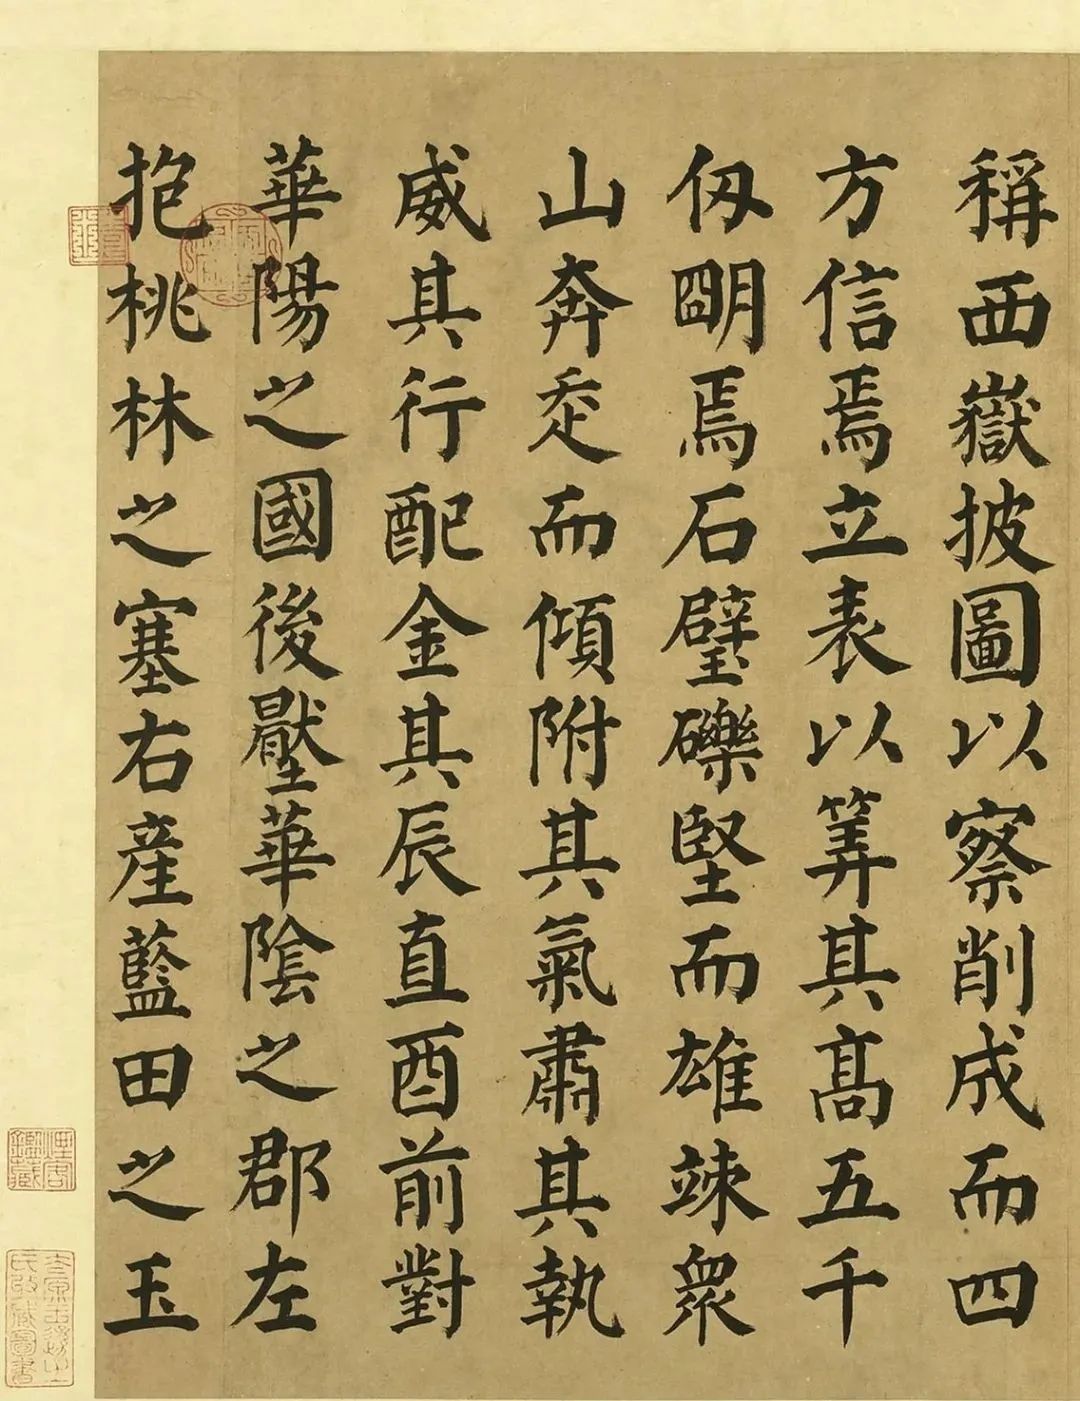 稱西嶽披圖以察削成而四
方信焉立表以筭其高五千
仭朙焉石壁礫堅而雄竦衆
山奔走而傾附其氣肅其執
威其行配金其辰直酉前對
華陽之國後壓華陰之郡左
抱桃林之塞右產藍田之玉